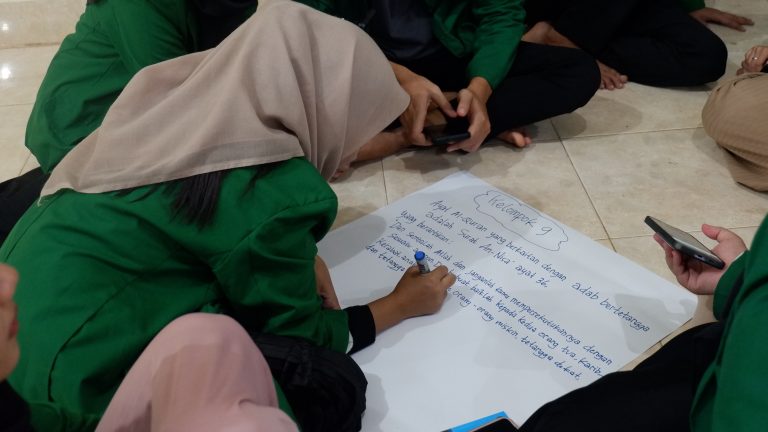 Kelompok 9
Ayat Al-Qur'an yang berkaitan dengan adab bertetangga
adalah Surah An-Nisa' ayat 36.
Yang berartikan:
"Dan sembahlah Allah dan janganlah kamu mempersekutukannya dengan
sesuatu baiklah kepada kedua orang tua, Karib-
Kerabat, ana orang, orang miskin, tetangga dekat,
dan tetangga